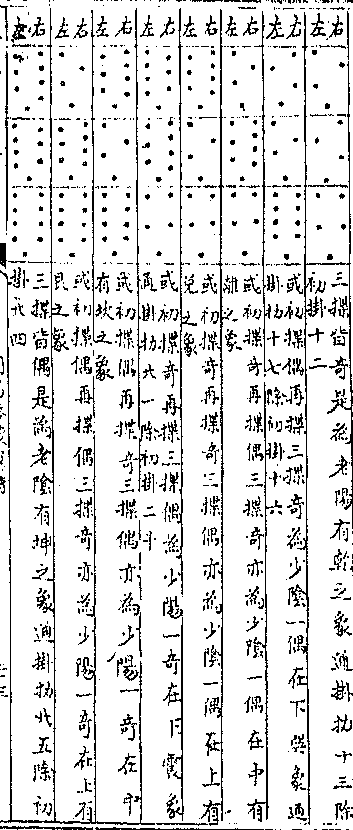 右 左
三揲皆奇是為老陽有乾之象通掛扐十三除
初掛十二
右 左
或初揲偶再揲三揲奇為少陰一偶在下巽象通
掛扐十七除初掛十六
右 左
或初揲奇再揲偶三揲奇亦為少陰一偶在中有
離之象
右 左
或初揲奇再揲奇三揲偶為少陰一偶在上有
兌之象
右 左
或初揲奇再揲三揲偶為少陽一奇在下震象
通掛扐六一除初掛二十
右 左
或初揲偶再揲奇三揲偶亦為少陽一奇在中
有坎之象
右 左
或初揲偶再揲偶三揲奇亦為少陽一奇在上有
艮之象
右 左
三揲皆偶是為老陰有坤之象通掛扐 五除初
掛 四